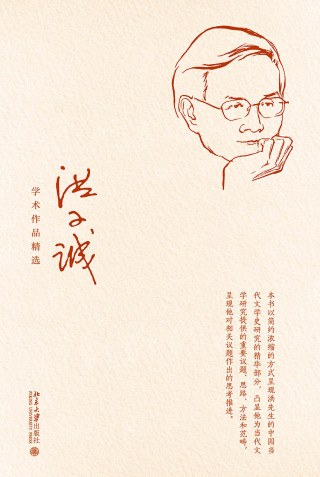 洪子诚
学术作品精选
本书以简约浓缩的方式呈现洪先生的中国当
代文学史研究的精华部分，凸显他为当代文
学研究提供的重要议题、思路、方法和范畴，
呈现他对相关议题作出的思考推进。
北京大学出版社
PEKING UNIVERSITY PRESS